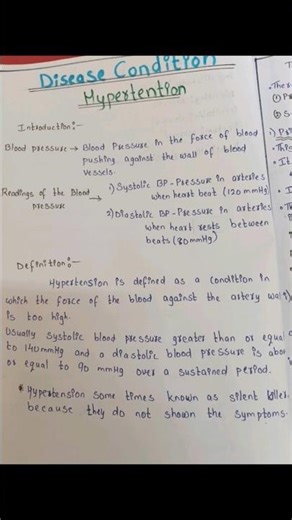 Disease Condition
Hypertention
Introduction:-
Blood pressure → Blood Pressure in the force of blood
pushing against the wall of blood
vessels.
Readings of the Blood pressure → 1) Systolic BP - Pressure in arteries
when heart beat (120 mmHg)
2) Diastolic BP - Pressure in arteries
when heart rests between
beats (80 mmHg)
Definition:-
Hypertension is defined as a condition in
which the force of the blood against the artery wall
is too high.
Usually systolic blood pressure greater than or equal
to 140 mmHg and a diastolic blood pressure is abov
or equal to 90 mmHg over a sustained period.
* Hypertension some times known as silent killer,
because they do not shown the symptoms.